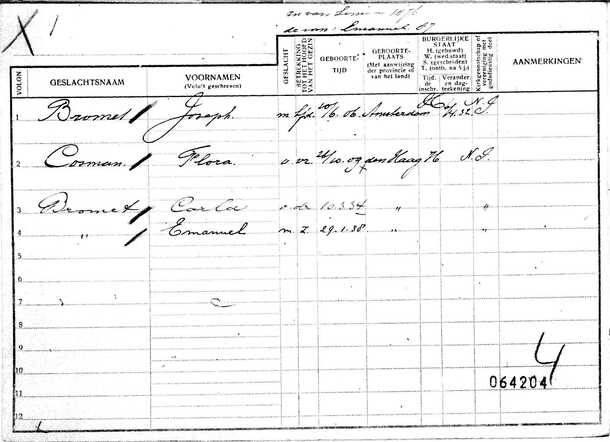 X 1
zn van Levi - 1876
de van: Emanuel 87
VOLGN GESLACHTSNAAM VOORNAMEN (Voluit geschreven) GESLACHT BETREKKING TOT HET HOOFD VAN HET GEZIN GEBOORTE-TIJD GEBOORTE-PLAATS (Met aanwijzing der provincie of van het land) BURGERLIJKE STAAT H. (gehuwd) W. (wed.staat) S. (gescheiden) T. (ontb. na 5 j.) Tijd. de inschr. Verander. en dag-teekening Kerkgenootschap of vereeniging met godsdienstig doel AANMERKINGEN
1 Bromet Joseph m hfd 06 Amsterdam H 32 N.I.
2 Cosman Flora v. vr. 09 den Haag H N.I.
3 Bromet Carla v. dr 10.3.34 " "
4 " Emanuel m z 29.1.38 " "
5
6
7
8
9
10
11
12
4
064204